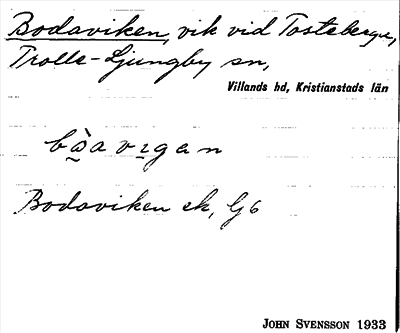 Bodaviken, vik vid Tosteberga,
Trolle-Ljungby sn,
Villands hd, Kristianstads län
bo̱̒a vı̱gan
Bodaviken ek, G6
JOHN SVENSSON 1933